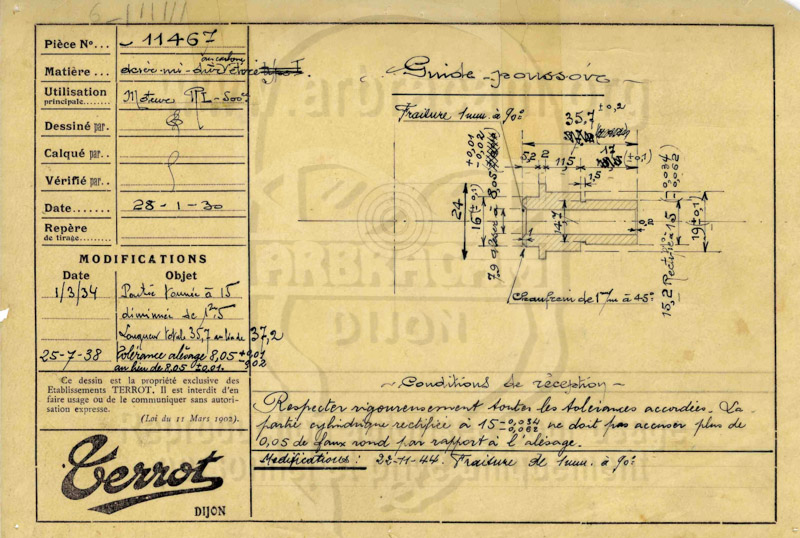 Pièce N°... 11467
Matière ... acier mi-dur
Utilisation
principale....... Moteur RL-500cc
Dessiné par.
Calqué par.
Vérifié par..
Date....... 28-1-30
Repère
de tirage.......
MODIFICATIONS
Date Objet
1/3/34 Partie tournée à 15
diminuée de 1m5
Longueur totale 35,7 au lieu de 37,2
25-7-38 tolérance alésage 8,05 +0,01
-0,02
au lieu de 8,05 ±0,01.
Ce dessin est la propriété exclusive des
Etablissements TERROT. Il est interdit d'en
faire usage ou de le communiquer sans autori-
sation expresse.
(Loi du 11 Mars 1902).
Terrot
DIJON
Guide-poussoir
Fraisure 1mm. à 90°
35,7 ±0,2
17 (±0,1)
5,2 2 11,5
1,5
24
16 (±0,1)
7,9 aléser à 8,05 +0,01
-0,02
14,7
0,2
15,2 Rectifié à 15 -0,034
-0,062
19 (±0,1)
Chanfrein de 1m/m à 45°
Conditions de réception
Respecter vigoureusement toutes les tolérances accordées. La
partie cylindrique rectifiée à 15 -0,034
-0,062 ne doit pas accuser plus de
0,05 de faux rond par rapport à l'alésage.
Modifications: 22-11-44. Fraisure de 1mm. à 90°